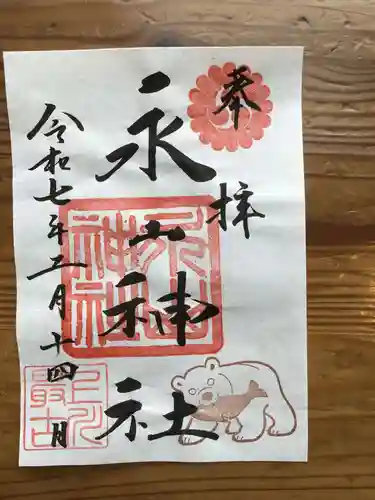 奉拝
永山神社
令和七年二月十四日
永山
神社
上川
最古